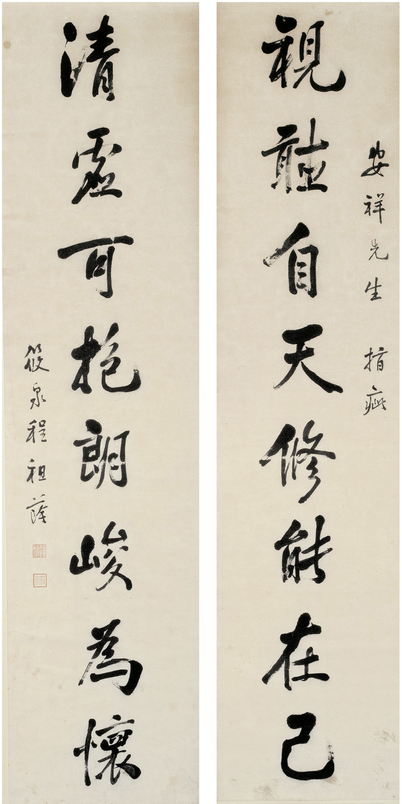 安祥先生 指疵
視聽自天修能在己
清虛可抱朗峻為懷
筱泉程祖蔭